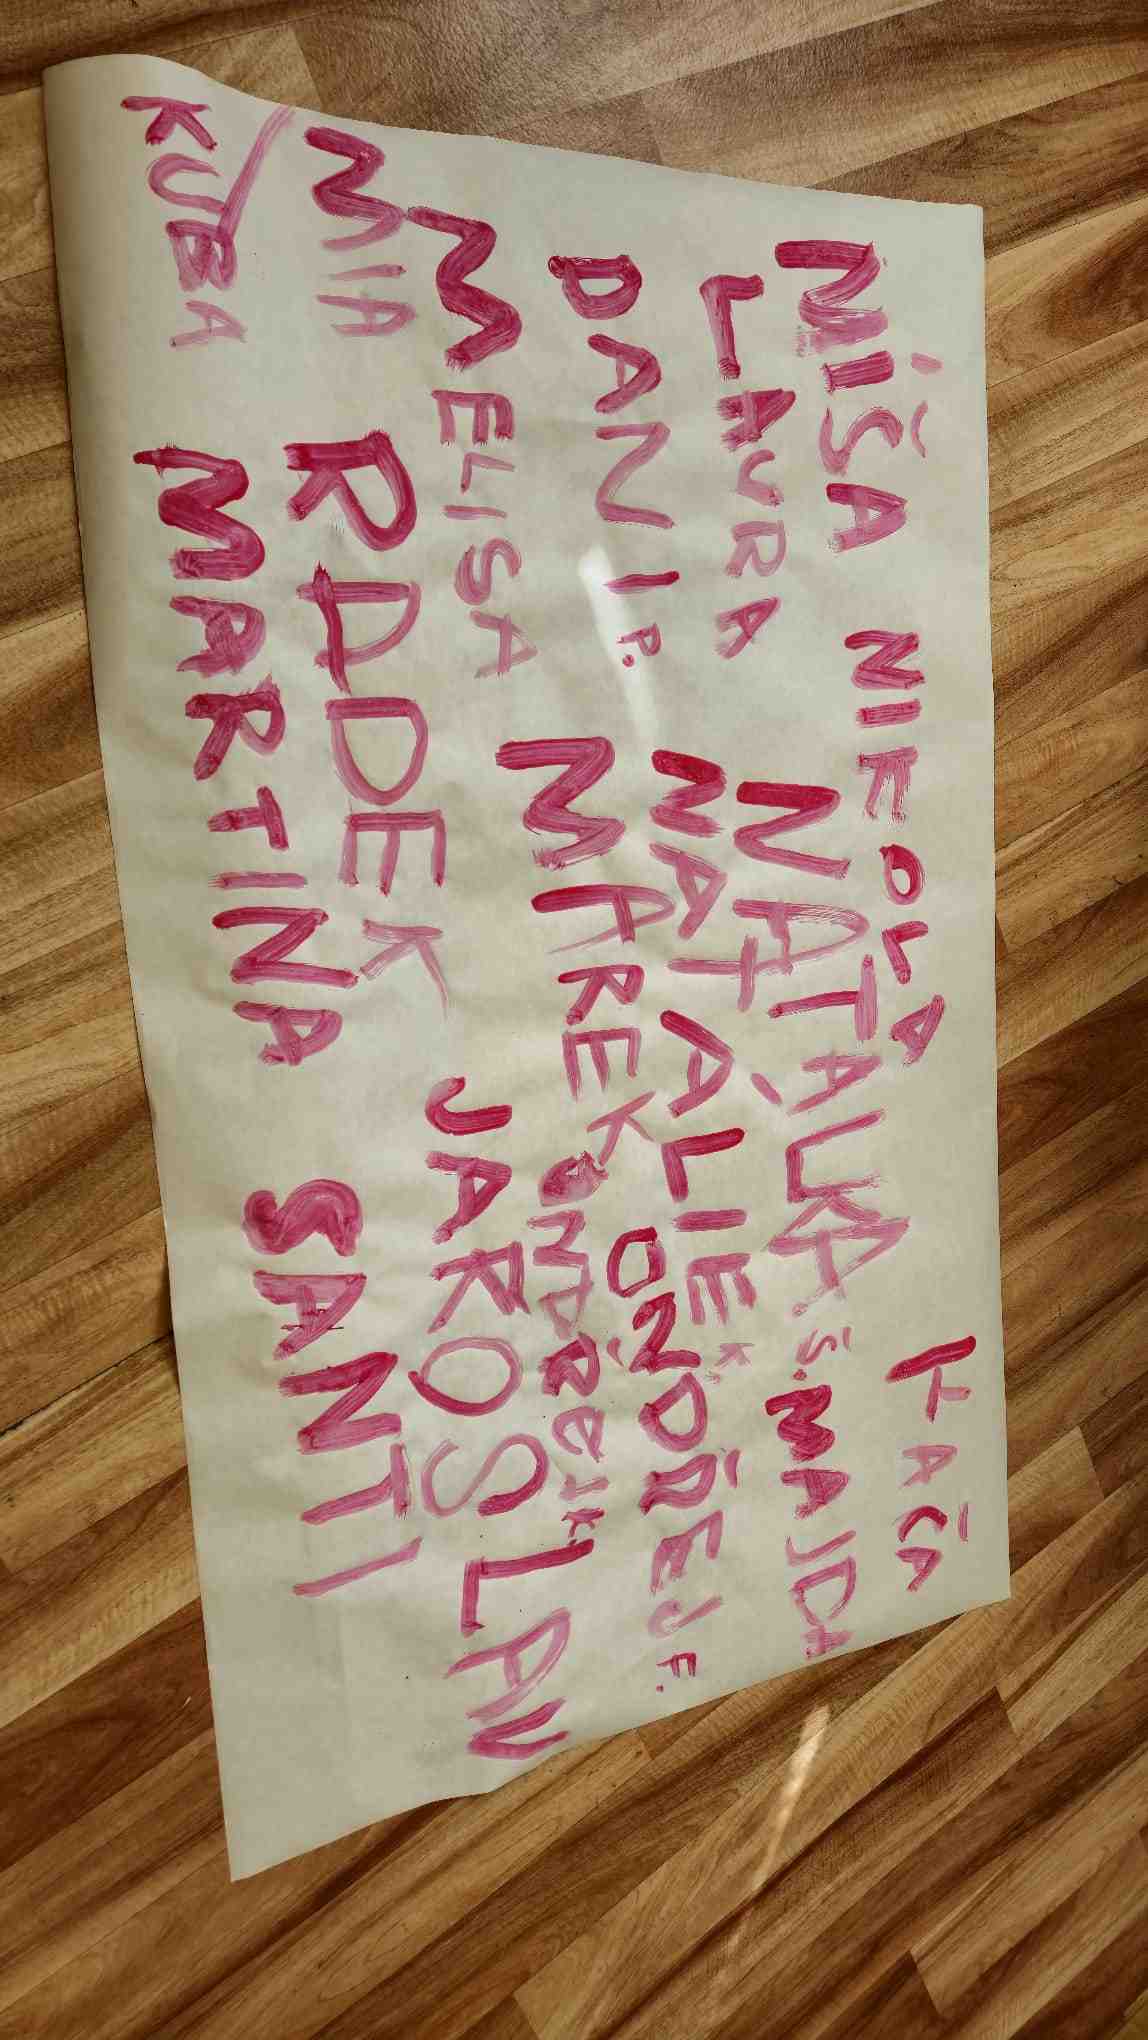 MÍŠA NIKOLA KÁČA
LAURA NATÁLKA Š. MAJDA
DAN P. NATALIE K. ONDŘEJ F.
MELISA MAREK ONDŘEJ K.
MIA RDDEK JAROSLAV
KUBA MARTINA SANTI